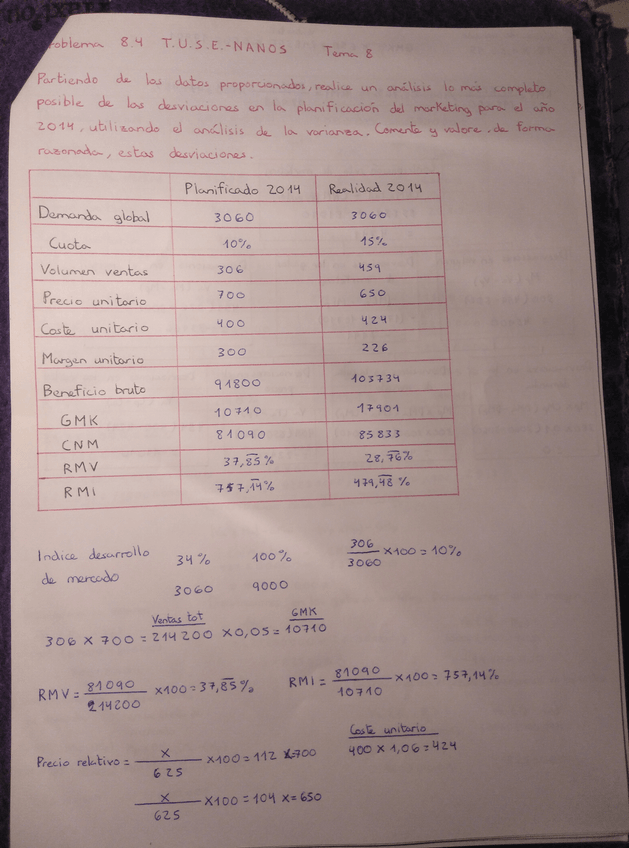 roblema 8.4 T.U.S.E.-NANOS Tema 8
Partiendo de los datos proporcionados, realice un análisis lo más completo
posible de las desviaciones en la planificación del marketing para el año
2014, utilizando el análisis de la varianza. Comente y valore, de forma
razonada, estas desviaciones.
Planificado 2014 Realidad 2014
Demanda global 3060 3060
Cuota 10% 15%
Volumen ventas 306 459
Precio unitario 700 650
Coste unitario 400 424
Margen unitario 300 226
Beneficio bruto 91800 103734
GMK 10710 17901
CNM 81090 85833
RMV 37,85% 28,76%
RMI 757,14% 479,48%
Indice desarrollo 34% 100% 306/3060 x100=10%
de mercado 3060 9000
Ventas tot GMK
306 x 700 = 214200 x0,05=10710
RMV = 81090/214200 x100=37,85% RMI = 81090/10710 x100=757,14%
Coste unitario
400 x 1,06=424
Precio relativo = x/625 x100=112 x=700
x/625 x100=104 x=650